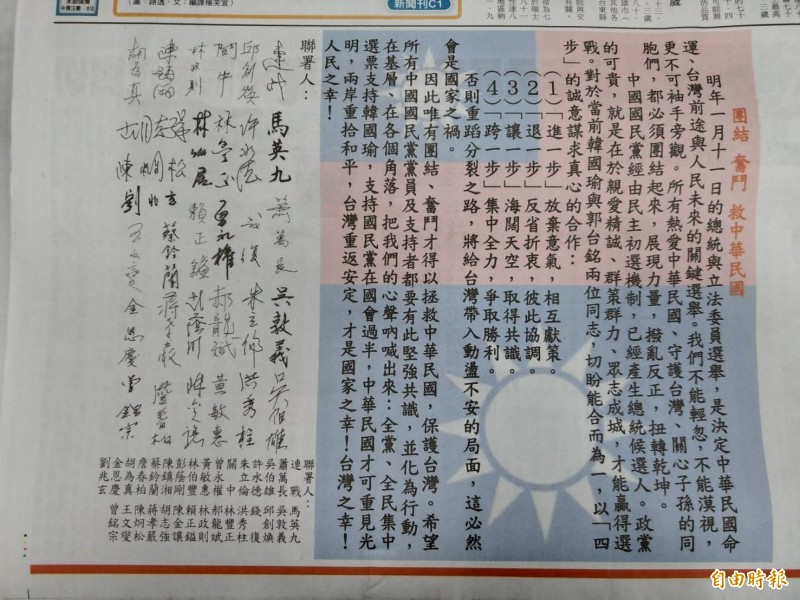 新聞刊C1
團結 奮鬥 救中華民國
明年一月十一日的總統與立法委員選舉,是決定中華民國命
運、台灣前途與人民未來的關鍵選舉。我們不能輕忽,不能漠視,
更不可袖手旁觀。所有熱愛中華民國、守護台灣、關心子孫的同
胞們,都必須團結起來,展現力量,撥亂反正,扭轉乾坤。
中國國民黨經由民主初選機制,已經產生總統候選人。政黨
的可貴,就是在於親愛精誠、群策群力、眾志成城,才能贏得選
戰。對於當前韓國瑜與郭台銘兩位同志,切盼能合而為一,以「四
步」的誠意謀求真心的合作:
(1)「進一步」放棄意氣,相互獻策。
(2)「退一步」反省折衷,彼此協調。
(3)「讓一步」海闊天空,取得共識。
(4)「跨一步」集中全力,爭取勝利。
否則重蹈分裂之路,將給台灣帶入動盪不安的局面,這必然
會是國家之禍。
因此唯有團結、奮鬥才得以拯救中華民國,保護台灣。希望
所有中國國民黨黨員及支持者都要有此堅強共識,並化為行動,
在基層、在各個角落,把我們的心聲吶喊出來:全黨、全民集中
選票支持韓國瑜,支持國民黨在國會過半,中華民國才可重見光
明,兩岸重拾和平,台灣重返安定,才是國家之幸!台灣之幸!
人民之幸!
聯署人:
連戰 馬英九 蕭萬長 吳敦義 吳伯雄
邱創煥 許水德 錢復 朱立倫 洪秀柱
關中 林豐正 曾永權 郝龍斌 黃敏惠
林政則 林伯豐 賴正鎰 彭蔭剛 陳金讓
陳鎮湘 胡志強 蔡鈴蘭 蔣孝嚴 詹春柏
胡為真 陳炯松 王文燮 金恩慶 曾銘宗
劉兆玄
聯署人:
連 戰 馬英九
蕭萬長 吳敦義
吳伯雄 邱創煥
許水德 錢 復
朱立倫 洪秀柱
關 中 林豐正
曾永權 郝龍斌
黃敏惠 林政則
林伯豐 賴正鎰
彭蔭剛 陳金讓
陳鎮湘 胡志強
蔡鈴蘭 蔣孝嚴
詹春柏 陳炯松
胡為真 王文燮
金恩慶 曾銘宗
劉兆玄
自由時報